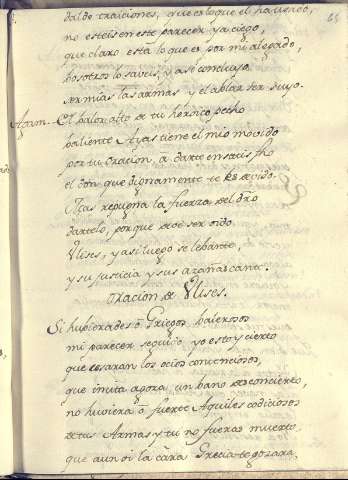 daldo traiciones, que es lo que el ha usado,
no esteis en este parecer ya ciego,
que claro està lo que es por mi alegado,
bosotros lo saveis y asi concluyo
ser mias las armas y el ablar ser suyo.
Agam. El balor alto de tu heroico pecho
baliente Ayas tiene el mio movido
por tu oracion, a darte en satisfho
el don que dignamente te es devido.
Mas repugna la fuerza del dro
dartelo, porque ha de ser oido
Ulises, y asi luego se lebante,
y su justicia y sus azañas cante.
Oracion de Ulises.
Si hubierades ò Griegos balerosos
mi parecer seguido yo estoy cierto
que cesaran los ocios contenciosos,
que incita agora un bano desconcierto,
no huviera ò fuerte Aquiles codiciosos
de tus Armas y tu no fueras muerto
que aun oi la cara Grecia te gozara,